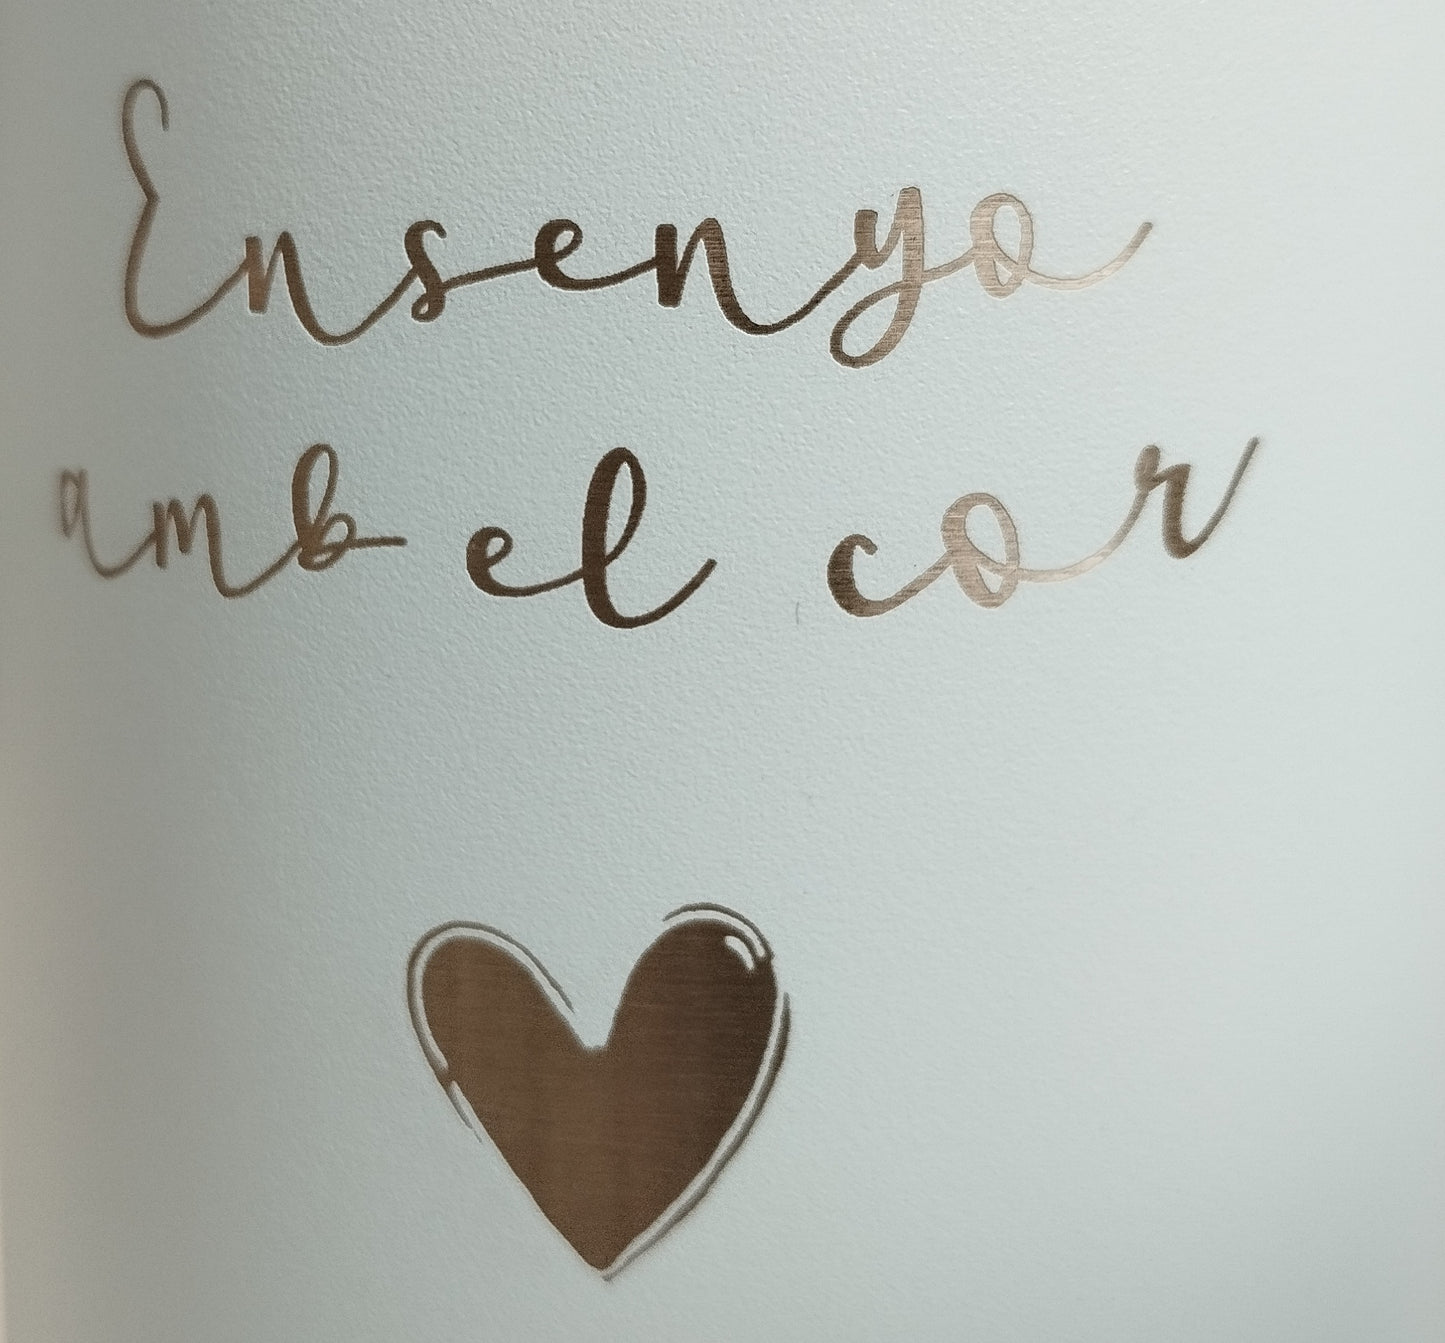 Ensenyo
amb el cor